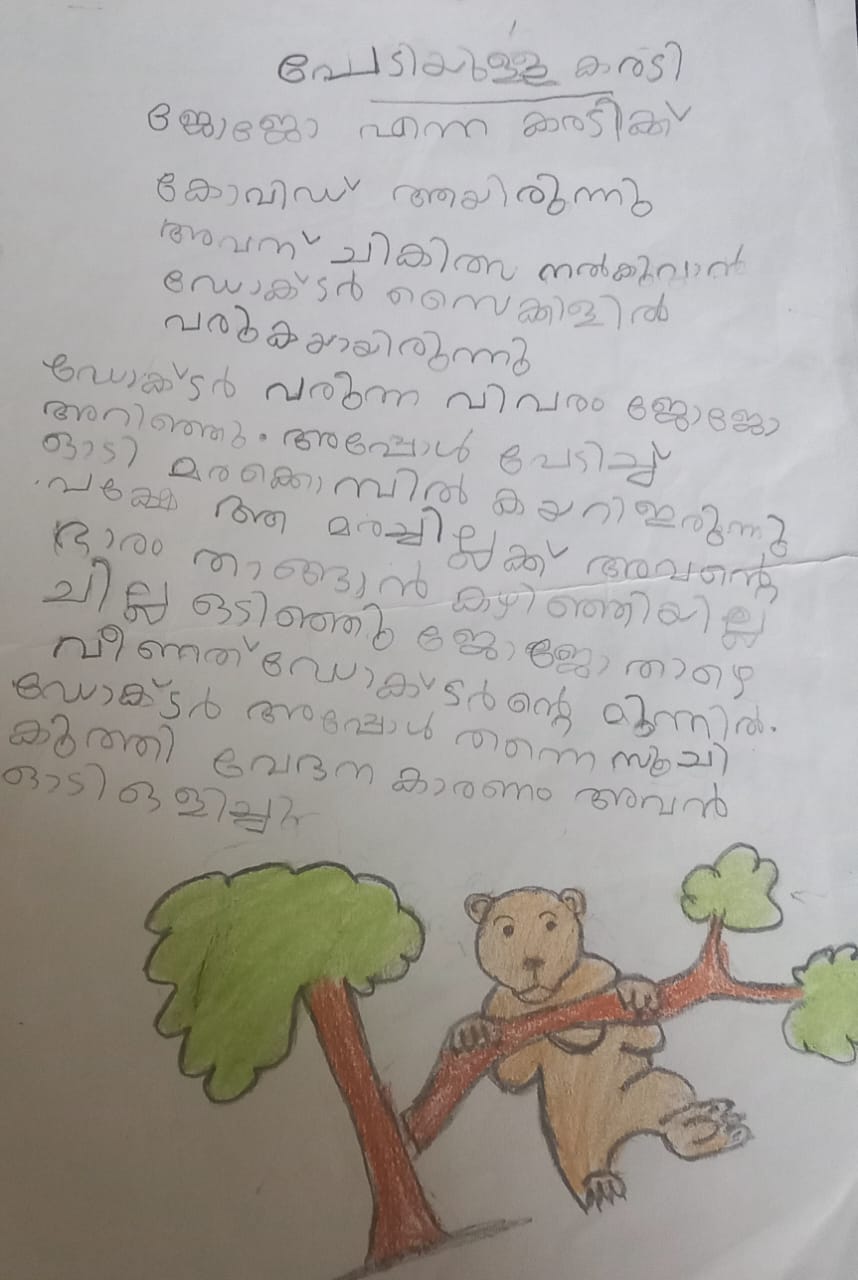 പേടിയുള്ള കരടി
ജോജോ എന്ന കരടിക്ക്
കോവിഡ് ആയിരുന്നു
അവന് ചികിത്സ നൽകുവാൻ
ഡോക്ടർ സൈക്കിളിൽ
വരുകയായിരുന്നു
ഡോക്ടർ വരുന്ന വിവരം ജോജോ
അറിഞ്ഞു. അപ്പോൾ പേടിച്ച്
ഓടി മരക്കൊമ്പിൽ കയറിഇരുന്നു
പക്ഷേ ആ മരച്ചില്ലക്ക് അവന്റെ
ഭാരം താങ്ങാൻ കഴിഞ്ഞിയില്ല
ചില്ല ഒടിഞ്ഞു ജോജോ താഴെ
വീണത് ഡോക്ടർന്റെ മുന്നിൽ.
ഡോക്ടർ അപ്പോൾ തന്നെ സൂചി
കുത്തി വേദന കാരണം അവൻ
ഓടി ഒളിച്ചു